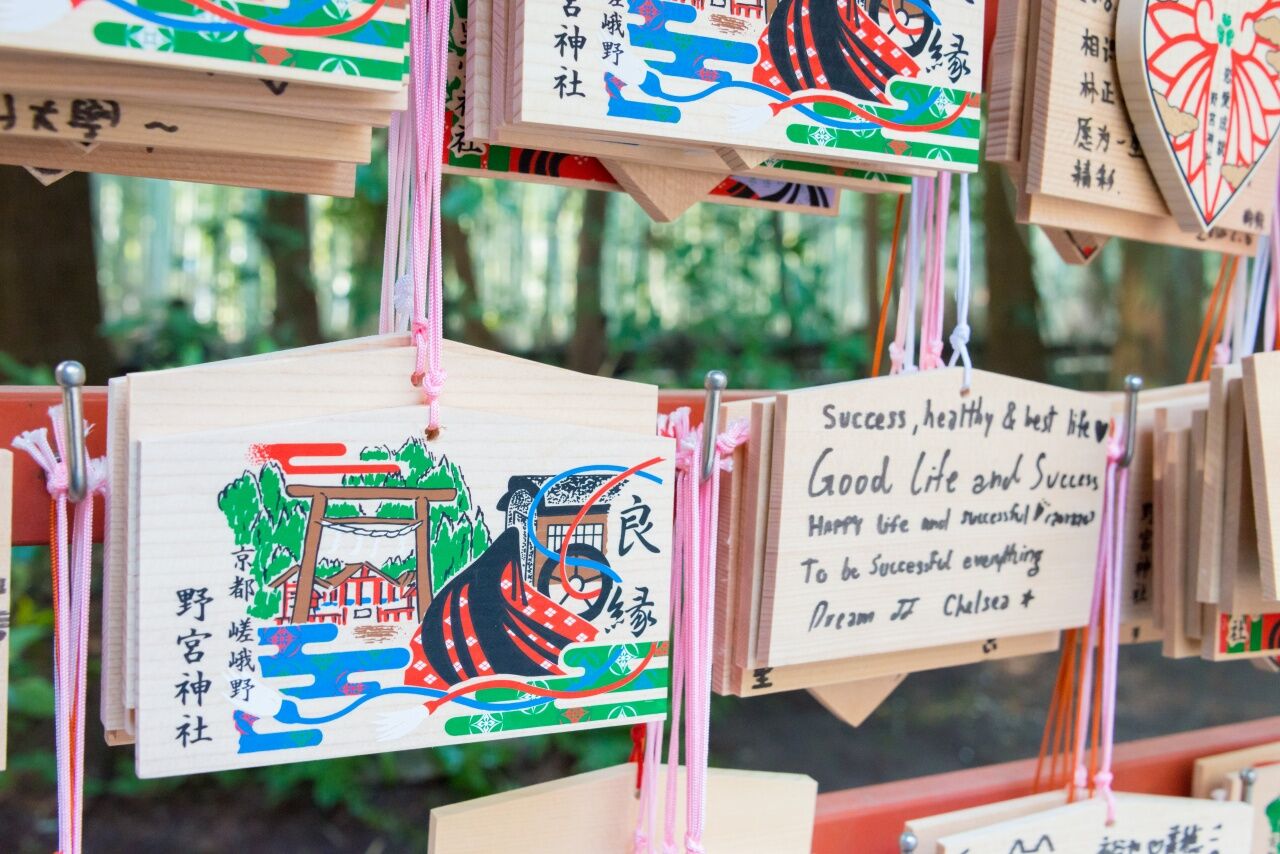 大學~
宮神社
嵯峨野
縁
社
相
林正
愿为一
精彩.
野宮神社
良縁
京都 嵯峨野
野宮神社
Success, healthy & best life♥
Good life and Success
HAPPY life and successful
To be Successful everything
Dream II Chelsea *
宮神社
社